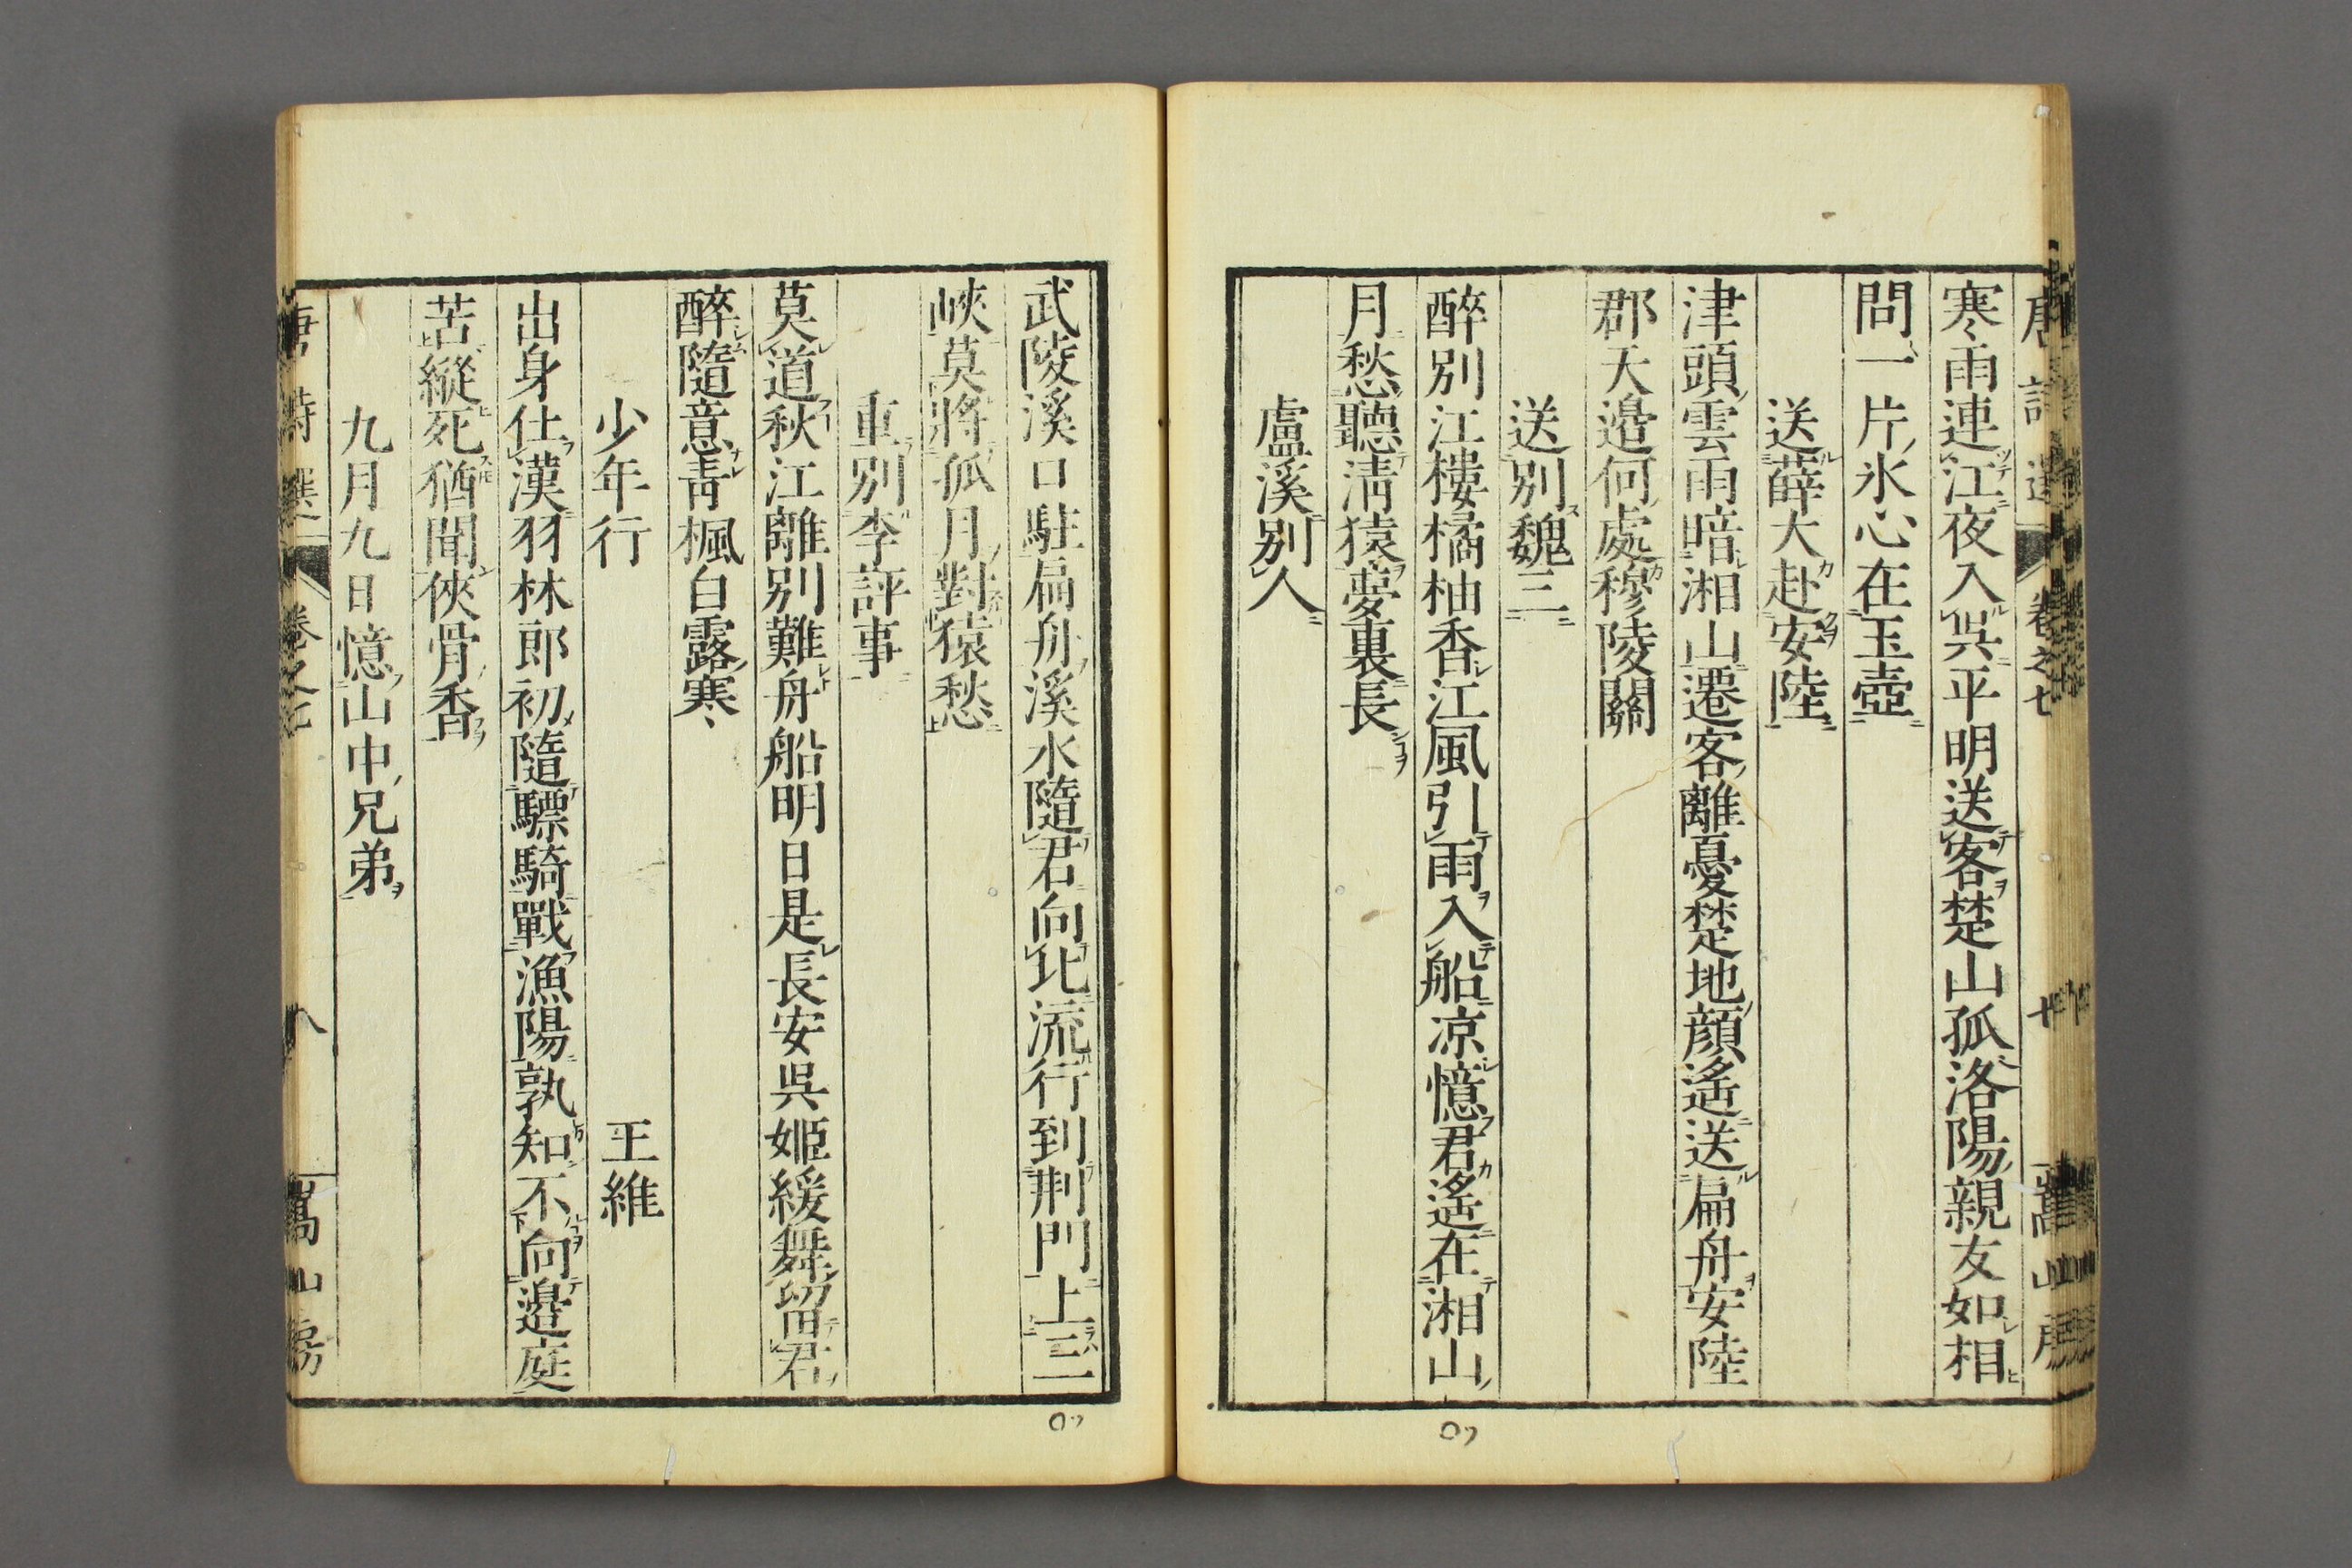 寒雨連江夜入吳平明送客楚山孤洛陽親友如相
問一片氷心在玉壺
送薛大赴安陸
津頭雲雨暗湘山遷客離憂楚地顔遙送扁舟安陸
郡天邉何處穆陵關
送別魏三
醉別江樓橘柚香江風引雨入船凉憶君遙在湘山
月愁聽淸猿夢裏長
盧溪別人
武陵溪口駐扁舟溪水隨君向北流行到荆門上三
峽莫將孤月對猿愁
重別李評事
莫道秋江離别難舟船明日是長安吳姬緩舞留君
醉隨意靑楓白露寒
少年行 王維
出身仕漢羽林郎初隨驃騎戰漁陽孰知不向邉庭
苦縱死猶聞俠骨香
九月九日憶山中兄弟
唐詩選 卷之七 八 嵩山房